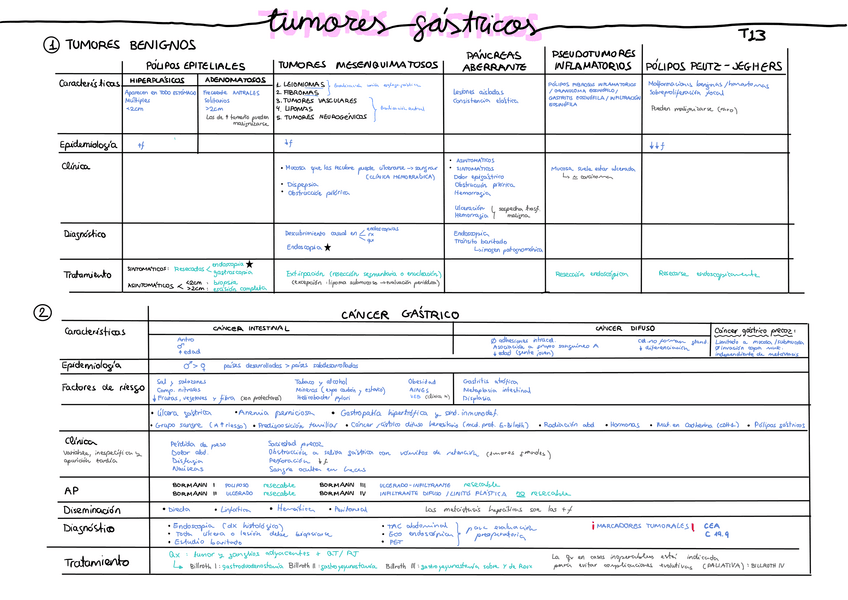 tumores gástricos
T13
1 TUMORES BENIGNOS
PÓLIPOS EPITELIALES
TUMORES MESENQUIMATOSOS
PÁNCREAS ABERRANTE
PSEUDOTUMORES INFLAMATORIOS
PÓLIPOS PEUTZ-JEGHERS
HIPERPLÁSICOS
ADENOMATOSOS
Características
Aparecen en TODO ESTÓMAGO
Múltiples
<2cm
Frecuente ANTRALES
Solitarios
>2cm
Los de ↑ tamaño pueden malignizarse
1. LEIOMIOMAS
2. FIBROMAS
3. TUMORES VASCULARES
4. LIPOMAS
5. TUMORES NEUROGÉNICOS
Lesiones aisladas
Consistencia elástica
PÓLIPOS FIBROSOS INFLAMATORIOS
/ GRANULOMA EOSINÓFILO /
GASTRITIS EOSINÓFILA / INFILTRACIÓN
EOSINÓFILA
Malformaciones benignas / hamartomas
Sobreproliferación focal
Pueden malignizarse (raro)
Epidemiología
↑f
↓f
↓↓f
Clínica
• Mucosa que los recubre puede ulcerarse → sangrar
(CLÍNICA HEMORRÁGICA)
• Dispepsia
• Obstrucción pilórica
• ASINTOMÁTICOS
• SINTOMÁTICOS
Dolor epigástrico
Obstrucción pilórica
Hemorragia
Ulceración
Hemorragia
sospecha
maligna
Mucosa suele estar ulcerada
Diagnóstico
Descubrimiento casual en
endoscopias
rx
qx
Endoscopia ★
Endoscopia
Tránsito baritado
Imagen patognomónica
Tratamiento
SINTOMÁTICOS: Resecarlos < endoscopia ★
gastroscopia
ASINTOMÁTICOS < <2cm: biopsia
>2cm: escisión completa
Extirpación (resección segmentaria o enucleación)
(excepción: lipoma submucoso → evaluación periódica)
Resección endoscópica
Resecarse endoscópicamente
2 CÁNCER GÁSTRICO
Características
CÁNCER INTESTINAL
CÁNCER DIFUSO
Cáncer gástrico precoz:
Antro
♂
↑ edad
Ø adhesiones intracel.
Asociación a grupo sanguíneo A
↓ edad (gente joven)
Cél no forman gland.
↓ diferenciación
Limitado a mucosa/submucosa
independiente de metástasis
Epidemiología
♂ > ♀ países desarrollados > países subdesarrollados
Factores de riesgo
Sal y salazones
Comp. nitrados
↓ Frutas, vegetales y fibra (son protectores)
Tabaco y alcohol
Mineros (expo carbón y estaño)
Helicobacter pylori
Obesidad
AINEs
Gastritis atrófica
Metaplasia intestinal
Displasia
• Úlcera gástrica • Anemia perniciosa • Gastropatía hipertrófica y sind. inmunodef.
• Grupo sangre (A ↑ riesgo) • Predisposición familiar • Cáncer gástrico difuso hereditario • Radiación abd • Hormonas • Mut en Cadherina (CDH1) • Pólipos gástricos
Clínica
Variable, inespecífica y
aparición tardía
Pérdida de peso
Dolor abd.
Disfagia
Náuseas
Saciedad precoz
Obstrucción a salida gástrica con vómitos de retención (tumores grandes)
Perforación ↓f
Sangre oculta en heces
AP
BORMANN I POLIPOSO resecable BORMANN III ULCERADO-INFILTRANTE resecable
BORMANN II ULCERADO resecable BORMANN IV INFILTRANTE DIFUSO / LINITIS PLÁSTICA no resecable
Diseminación
• Directa • Linfática • Hemática • Peritoneal Las metástasis hepáticas son las +f
Diagnóstico
• Endoscopia (dx histológico)
• Toda úlcera o lesión debe biopsiarse
• Estudio baritado
• TAC abdominal
• Eco endoscópica
• PET
para evaluación
preoperatoria
¡MARCADORES TUMORALES! CEA
C 19.9
Tratamiento
Qx: tumor y ganglios adyacentes + QT/RT
Billroth I: gastroduodenostomía Billroth II: gastroyeyunostomía Billroth III: gastroyeyunostomía sobre Y de Roux
La qx en casos inoperables está indicada
para evitar complicaciones evolutivas (PALIATIVA): BILLROTH IV